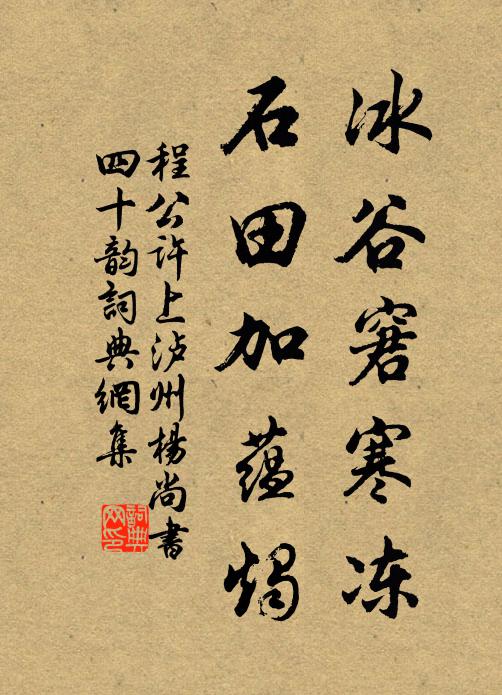 冰谷窘寒冻
石田加蕴燭
程公许上泸州楊尚書
四十韵詞典網集
詞典
网印